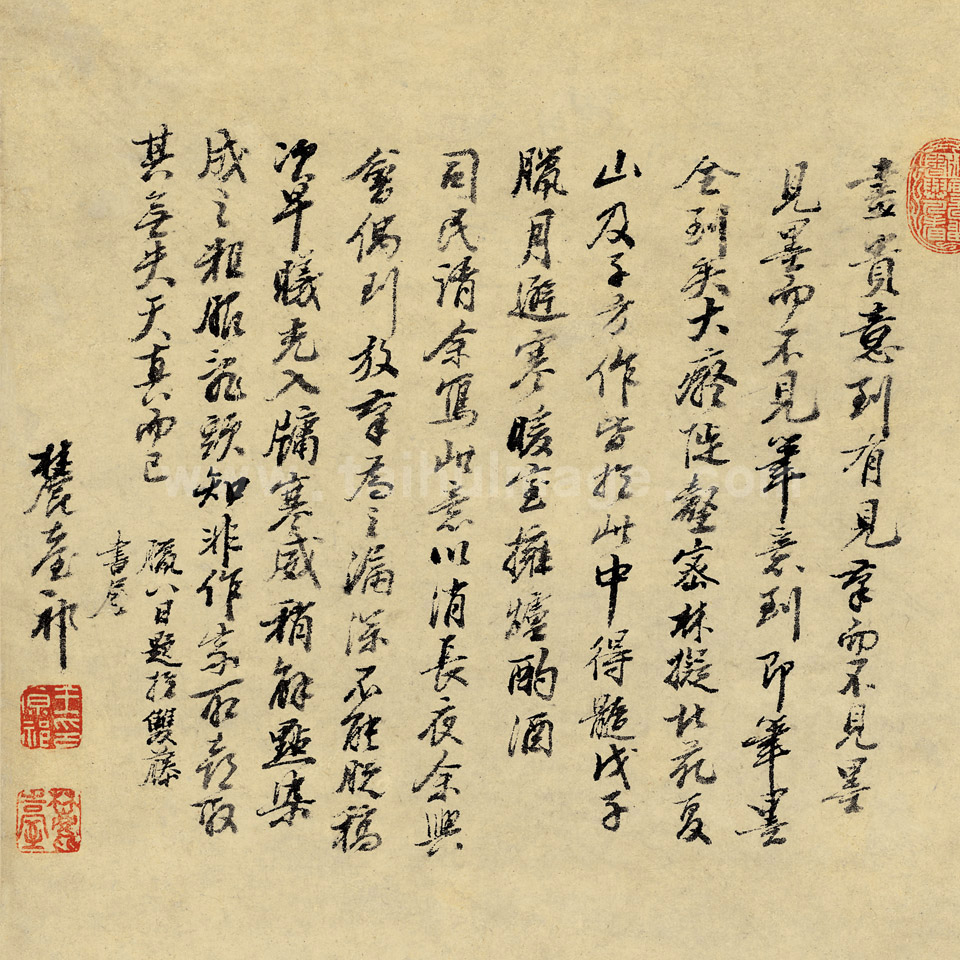 畫貴意到有見筆而不見墨
見墨而不見筆意到即筆墨
全到矣大癡陡壑密林擬北苑夏
山及子方作皆於此中得髓戊子
臘月避寒暖室擁爐酌酒
司民請余寫此意以消長夜余興
會偶到放筆為之漏深不能脫稿
次早曦光入牖寒威稍解點染
成之粗服亂頭知非作家所喜取
其無失天真而已
臘八日題於雙藤
書屋
麓臺祁
王原祁印
麓臺